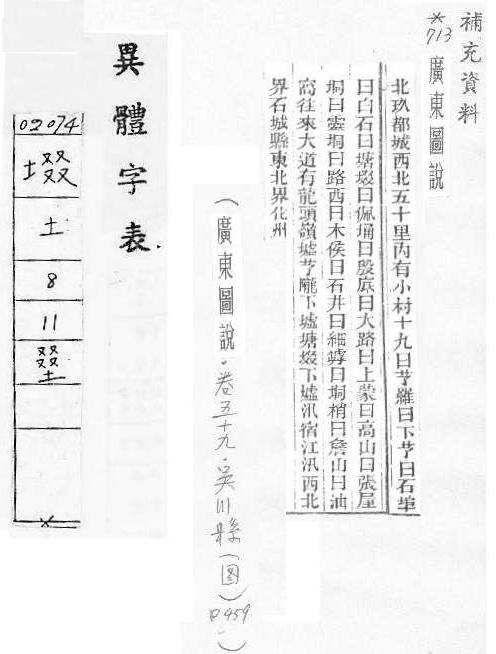 補充資料
*713 廣東圖說
北玖都城西北五十里內有小村十九曰羅曰下曰石埠
曰白石曰塘㙍曰佩埇曰殷底曰大路曰上蒙曰高山曰張屋
垌曰雲垌曰路西曰木侯曰石井曰細曰垌梢曰詹山曰油
窩往來大道有龍頭嶺墟隴下墟塘㙍下墟汛宿江汛西北
界石城縣東北界化州
(廣東圖說．卷五十九．吳川縣(图)P459．)
異體字表.
02074
㙍
土
8
11